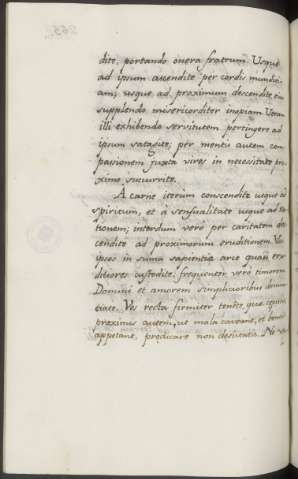 dite, portando onera fratrum. Usque
ad ipsum ascendite per cordis munditi-
am; usque ad proximum descendite eius
supplendo misericorditer inopiam. Utrum
illi exhibendo servitutem pertingere ad
ipsum satagite; per mentis autem com
passionem juxta vires in necessitate pro
ximo succurrite.
A carne iterum conscendite usque ad
spiritum, et à sensualitate usque ad ra
tionem; interdum verò per caritatem des
cendite ad proximorum eruditionem. Vos
ipsos in summa sapientia arce quasi eru
ditiores custodite. frequenter verò timorem
Domini et amorem simplicioribus denun
tiate. Vos recta firmiter tendite que
proximis autem, ut mala caveant, et bona
appetant, prædicare non desinatis. Ne